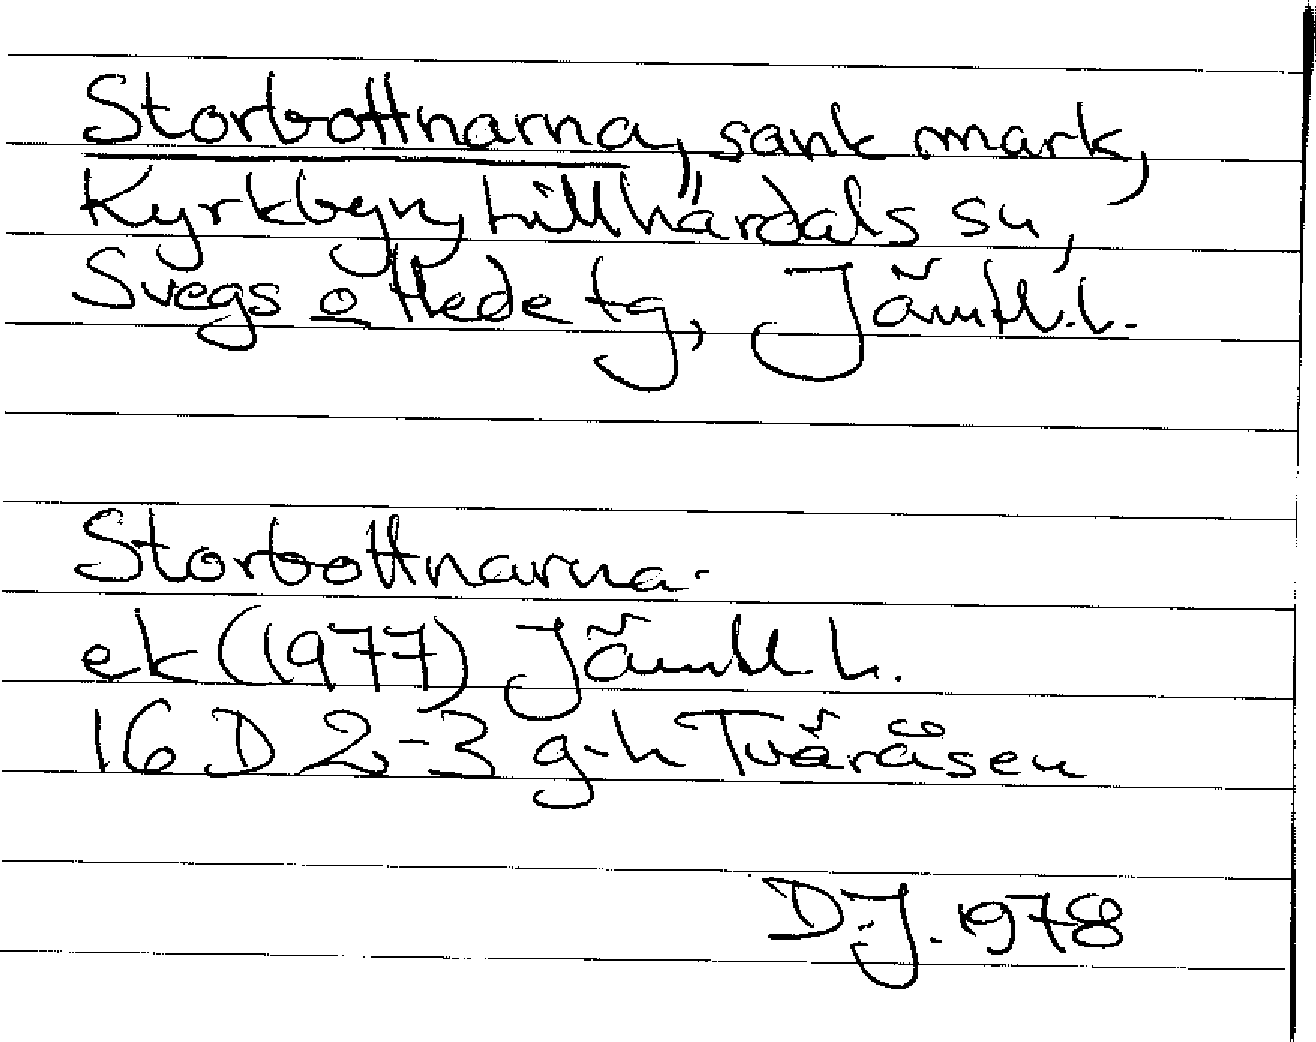 Storbottnarna, sank mark,
Kyrkbyn, Lillhärdals sn,
Svegs o Hede tg, Jämtl. l.
Storbottnarna
ek (1977) Jämtl l.
16 D 2-3 g-h Tväråsen
D.J. 1978